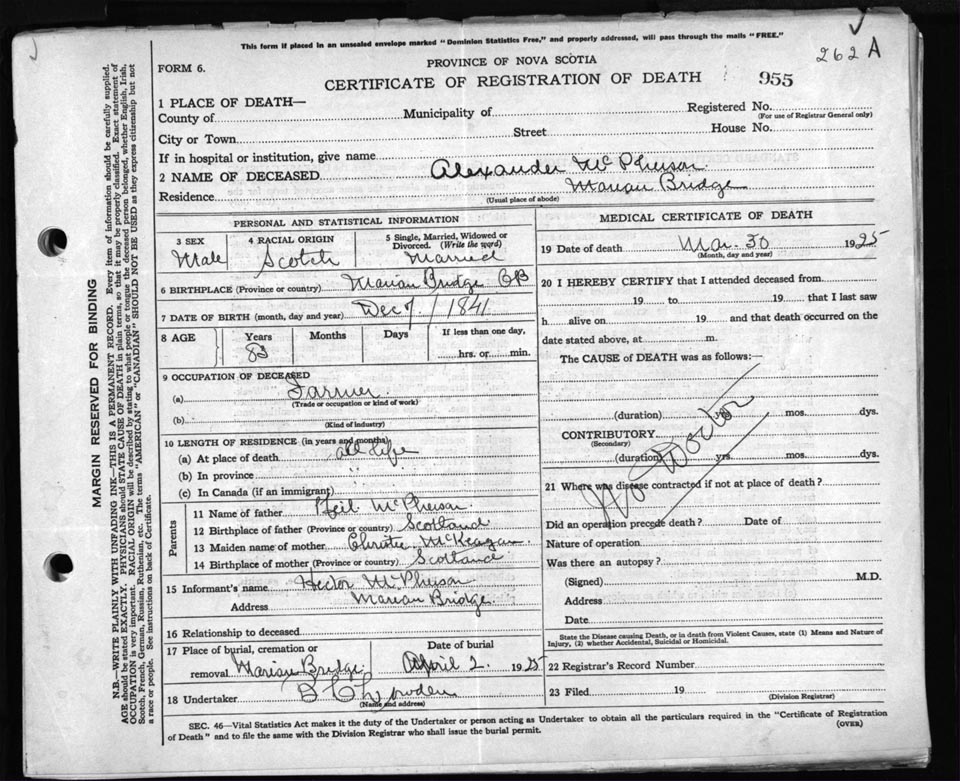 This form if placed in an unsealed envelope marked "Dominion Statistics Free," and properly addressed, will pass through the mails "FREE."
262 A
PROVINCE OF NOVA SCOTIA
FORM 6.
CERTIFICATE OF REGISTRATION OF DEATH 955
1 PLACE OF DEATH—
County of Municipality of Registered No.
(For use of Registrar General only)
City or Town Street House No.
If in hospital or institution, give name
2 NAME OF DECEASED Alexander McPherson
Residence Marian Bridge
(Usual place of abode)
PERSONAL AND STATISTICAL INFORMATION
3 SEX 4 RACIAL ORIGIN 5 Single, Married, Widowed or Divorced. (Write the word)
Male Scotch Married
6 BIRTHPLACE (Province or country) Marian Bridge CB
7 DATE OF BIRTH (month, day and year) Dec 7 / 1841
8 AGE Years Months Days If less than one day,
83 hrs. or min.
9 OCCUPATION OF DECEASED
(a) Farmer
(Trade or occupation or kind of work)
(b)
(Kind of industry)
10 LENGTH OF RESIDENCE (in years and months)
(a) At place of death all life
(b) In province
(c) In Canada (if an immigrant)
Parents
11 Name of father Neil McPherson
12 Birthplace of father (Province or country) Scotland
13 Maiden name of mother Christie McKeagan
14 Birthplace of mother (Province or country) Scotland
15 Informant's name Hector McPherson
Address Marian Bridge
16 Relationship to deceased
17 Place of burial, cremation or removal Marian Bridge Date of burial April 2 1925
18 Undertaker
(Name and address)
MEDICAL CERTIFICATE OF DEATH
19 Date of death Mar. 30 1925
(Month, day and year)
20 I HEREBY CERTIFY that I attended deceased from
19 to 19 that I last saw
h alive on 19 and that death occurred on the
date stated above, at m.
The CAUSE of DEATH was as follows:—
(duration) yrs. mos. dys.
CONTRIBUTORY
(Secondary)
(duration) yrs. mos. dys.
No Doctor
21 Where was disease contracted if not at place of death?
Did an operation precede death? Date of
Nature of operation
Was there an autopsy?
(Signed) M.D.
Address
Date
State the Disease causing Death, or in death from Violent Causes, state (1) Means and Nature of Injury, (2) whether Accidental, Suicidal or Homicidal.
22 Registrar's Record Number
23 Filed 19
(Division Registrar)
SEC. 46—Vital Statistics Act makes it the duty of the Undertaker or person acting as Undertaker to obtain all the particulars required in the "Certificate of Registration
of Death" and to file the same with the Division Registrar who shall issue the burial permit. (OVER)
MARGIN RESERVED FOR BINDING
N.B.—WRITE PLAINLY WITH UNFADING INK—THIS IS A PERMANENT RECORD. Every item of information should be carefully supplied.
AGE should be stated EXACTLY. PHYSICIANS should STATE CAUSE OF DEATH in plain terms, so that it may be properly classified. Exact statement of
OCCUPATION is very important. RACIAL ORIGIN will be described by stating to what people or tongue the deceased person belonged, whether English, Irish,
Scotch, French, German, Russian, Ruthenian, etc. The terms "AMERICAN" or "CANADIAN" SHOULD NOT BE USED as they express citizenship but not
a race or people. See instructions on back of Certificate.